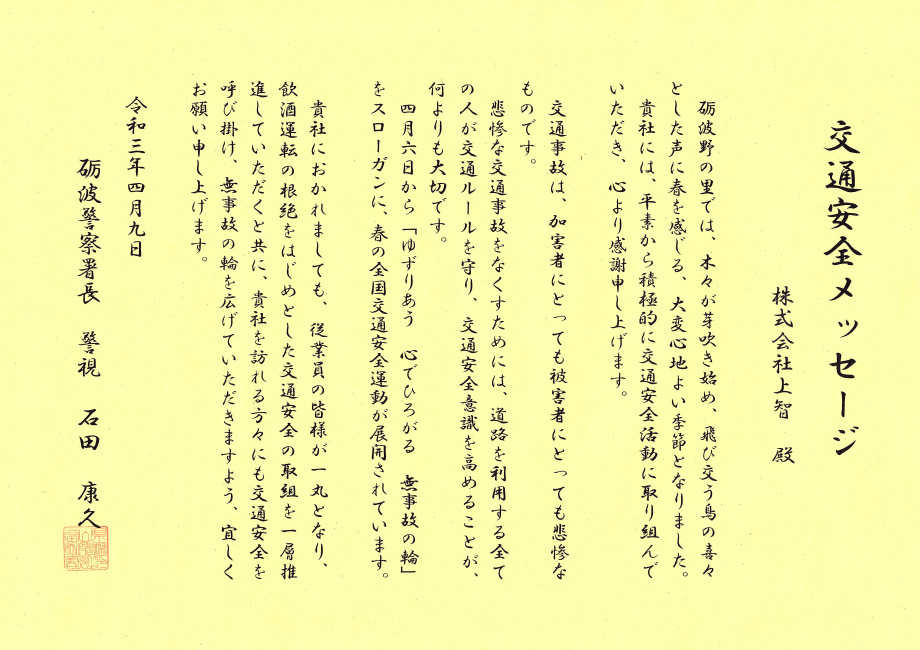 交通安全メッセージ
株式会社上智　殿
砺波野の里では、木々が芽吹き始め、飛び交う鳥の喜々
とした声に春を感じる、大変心地よい季節となりました。
貴社には、平素から積極的に交通安全活動に取り組んで
いただき、心より感謝申し上げます。
交通事故は、加害者にとっても被害者にとっても悲惨な
ものです。
悲惨な交通事故をなくすためには、道路を利用する全て
の人が交通ルールを守り、交通安全意識を高めることが、
何よりも大切です。
四月六日から「ゆずりあう　心でひろがる　無事故の輪」
をスローガンに、春の全国交通安全運動が展開されています。
貴社におかれましても、従業員の皆様が一丸となり、
飲酒運転の根絶をはじめとした交通安全の取組を一層推
進していただくと共に、貴社を訪れる方々にも交通安全を
呼び掛け、無事故の輪を広げていただきますよう、宜しく
お願い申し上げます。
令和三年四月九日
砺波警察署長　警視　石田　康久